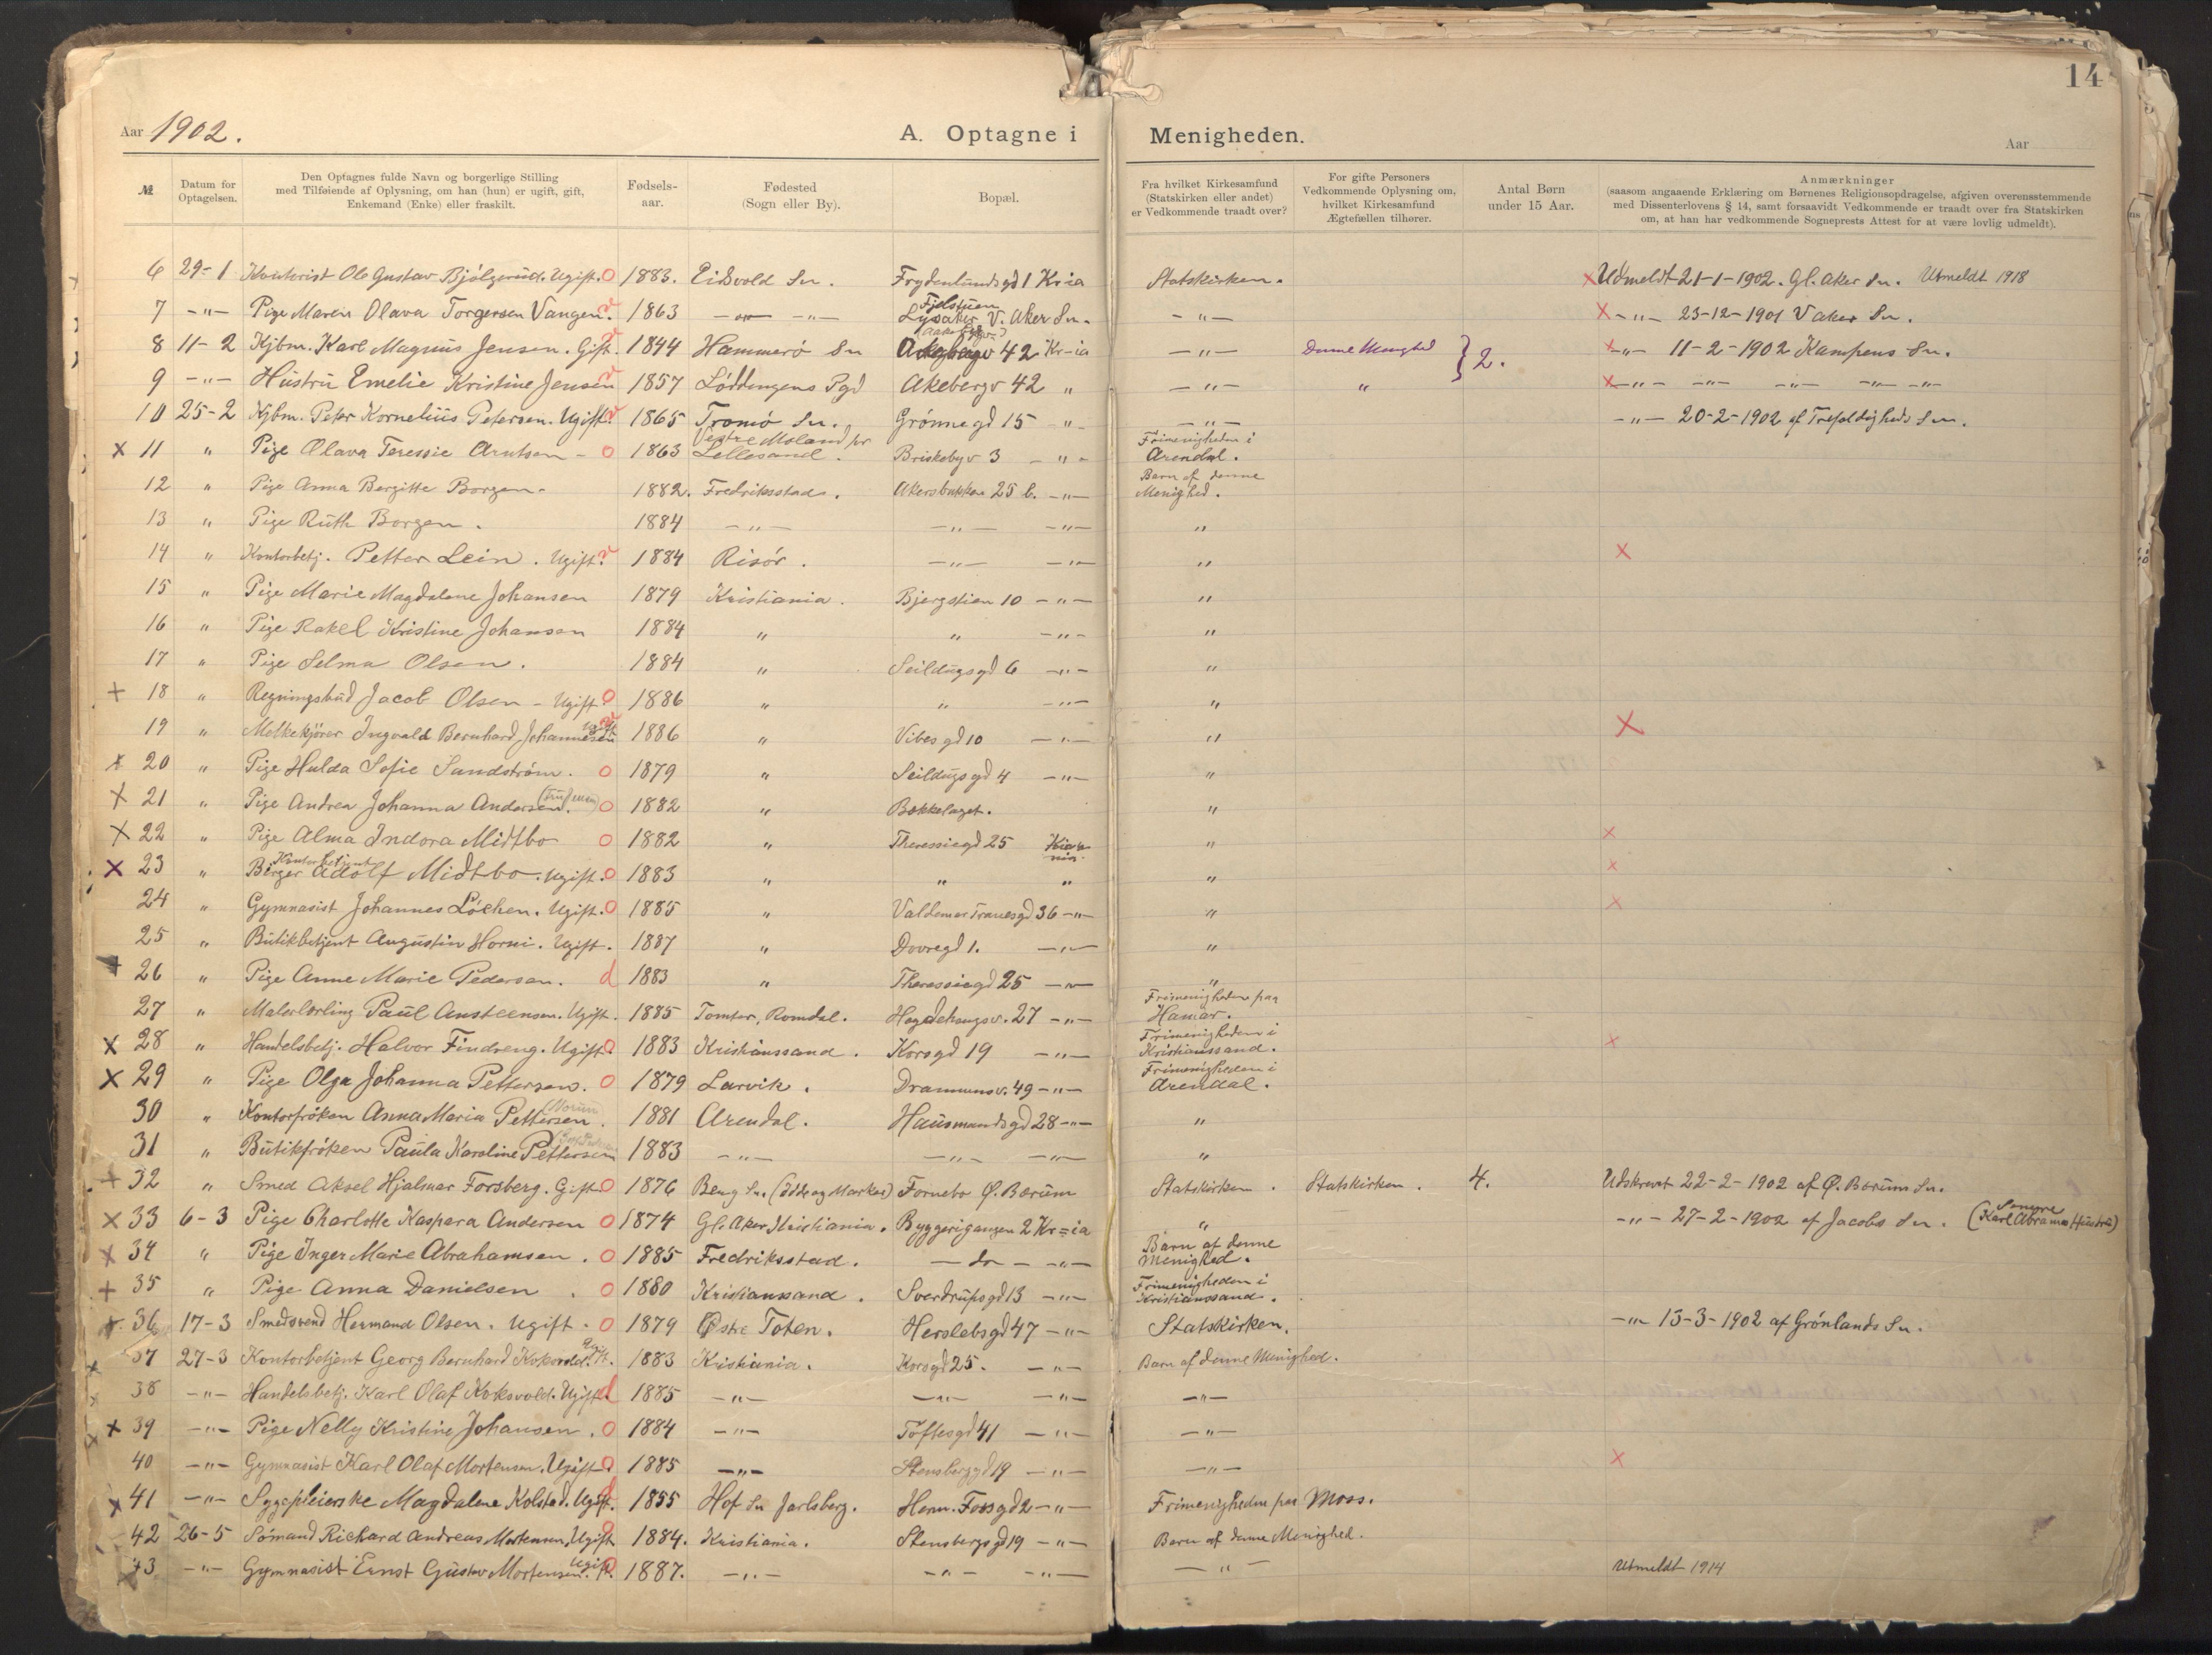 14
Aar 1902.
A. Optagne i Menigheden.
Aar
№
Datum for Optagelsen.
Den Optagnes fulde Navn og borgerlige Stilling
med Tilføiende af Oplysning, om han (hun) er ugift, gift,
Enkemand (Enke) eller fraskilt.
Fødsels-
aar.
Fødested
(Sogn eller By).
Bopæl.
Fra hvilket Kirkesamfund
(Statskirken eller andet)
er Vedkommende traadt over?
For gifte Personers
Vedkommende Oplysning om,
hvilket Kirkesamfund
Ægtefællen tilhører.
Antal Børn
under 15 Aar.
Anmærkninger
(saasom angaaende Erklæring om Børnenes Religionsopdragelse, afgiven overensstemmende
med Dissenterlovens § 14, samt forsaavidt Vedkommende er traadt over fra Statskirken
om, at han har vedkommende Sogneprests Attest for at være lovlig udmeldt).
6 29-1 Kontorist Ole Gustav Bjölgerud. Ugift. O 1883. Eidsvold Sn. Frydenlundsgd 1 Kr-ia Statskirken. X Udmeldt 21-1-1902. Gl. Aker Sn. Utmeldt 1918
7 -"- Pige Maren Olava Torgersen Vangen. 1863 -"- -"- Fjelstuen Lysaker V. Aker Sn. -"- X -"- 23-12-1901 V Aker Sn.
8 11-2 Kjbm. Karl Magnus Jensen. Gift. 1844 Hammerö Sn 42 Kr-ia -"- Denne Menighed } 2. X -"- 11-2-1902 Kampens Sn.
9 -"- Hustru Emelie Kristine Jensen 1857 Löddingens Pgd Akebergv 42 " -"- " X -"- -"- -"- -"- -"-
10 25-2 Kjbm. Peter Kornelius Petersen. Ugift. 1865 Tromö Sn. Grönnegd 15 -"- -"- -"- 20-2-1902 af Trefoldigheds Sn.
X 11 " Pige Olava Teressie Arntsen - O 1863 Vestre Moland pr Lillesand. Briskebyv 3 -"- Frimenigheden i Arendal.
12 " Pige Anna Bergitte Borgen. 1882. Fredriksstad. Akersbakken 25 b. -"- Barn af denne Menighed.
13 " Pige Ruth Borgen. 1884 -"- -"- -"- "
14 " Kontorbetj. Petter Lein. Ugift. 1884 Risör. -"- -"- " X
15 " Pige Marie Magdalene Johansen 1879 Kristiania. Bjergstien 10 -"- "
16 " Pige Rakel Kristine Johansen 1884 " " -"- "
17 " Pige Selma Olsen. 1884 " Seildugsgd 6 -"- "
+ 18 " Regningsbud Jacob Olsen - Ugift O 1886 " " -"- "
19 " Melkekjörer Ingvald Bernhard Johannesen Ugift 1886 " Vibesgd 10 -"- " X
X 20 " Pige Hulda Sofie Sandström. O 1879 " Seildugsgd 4 -"- "
X 21 " Pige Andrea Johanna Andersen. O 1882 " Bekkelaget. "
X 22 " Pige Alma Indora Midtbo O 1882 " Theressiegd 25 " X
X 23 " Kontorbetjent Birger Adolf Midtbo. Ugift. O 1883 " " " " X
24 " Gymnasist Johannes Löchen. Ugift. O 1885 " Valdemar Tranesgd 36 -"- " X
25 " Butikbetjent Augustin Horni. Ugift. 1887 " Dovregd 1. -"- "
+ 26 " Pige Anne Marie Pedersen. d 1883 " Theressiegd 25 -"- "
27 " Malerlærling Paul Ansteensen. Ugift. 1885 Tomter, Romdal. Hagdehaugsv. 27 -"- Frimenigheden paa Hamar.
X 28 " Handelsbetj. Halvor Findreng. Ugift. O 1883 Kristianssand. Korsgd 19 -"- Frimenigheden i Kristianssand. X
X 29 " Pige Olga Johanna Pettersen. O 1879 Larvik. Drammensv. 49 -"- Frimenigheden i Arendal.
30 " Kontorfröken Anna Maria Pettersen. 1881 Arendal. Hausmandsgd 28 -"- "
31 " Butikfröken Paula Karoline Pettersen 1883 -"- -"- -"- "
+ 32 " Smed Aksel Hjalmar Forsberg. Gift O 1876 Berg Sn. (Idd og Marker) Fornebo Ø. Bærum Statskirken. Statskirken. 4. Udskrevet 22-2-1902 af Ø. Bærums Sn.
X 33 6-3 Pige Charlotte Kaspara Andersen O 1874 Gl. Aker, Kristiania. Byggerigangen 2 Kr-ia " -"- 27-2-1902 af Jacobs Sn. (Senere Karl Abrams Hustru)
X 34 " Pige Inger Marie Abrahamsen. O 1885 Fredriksstad. - do - -"- Barn af denne Menighed.
+ 35 " Pige Anna Danielsen. O 1880 Kristianssand. Sverdrupsgd 13 -"- Frimenigheden i Kristianssand.
+ 36 17-3 Smedsvend Hermand Olsen. Ugift. O 1879 Østre Toten. Herslebsgd 47 -"- Statskirken. -"- 15-3-1902 af Grönlands Sn.
X 37 27-3 Kontorbetjent Georg Bernhard Ugift. 1883 Kristiania. Korsgd 25. -"- Barn af denne Menighed.
X 38 -"- Handelsbetj. Karl Olaf Koksvold. Ugift. d 1885 -"- -"- -"- -"-
X 39 -"- Pige Nelly Kristine Johansen. O 1884 -"- Toftesgd 41 -"- -"-
40 -"- Gymnasist Karl Olaf Mortensen. Ugift. O 1885 -"- Stensbergd 19 -"- -"- X
X 41 -"- Sygepleierske Magdalene Kolstad. Ugift. 1855 Hof Sn Jarlsberg. Henr. Fossgd 2 -"- Frimenigheden paa Moss.
42 26-5 Sömand Richard Andreas Mortensen, Ugift 1884. Kristiania. Stensbergsgd 19 -"- Barn af denne Menighed.
43 -"- Gymnasist Ernst Gustav Mortensen. Ugift. 1887. -"- -"- -"- -"- Utmeldt 1914